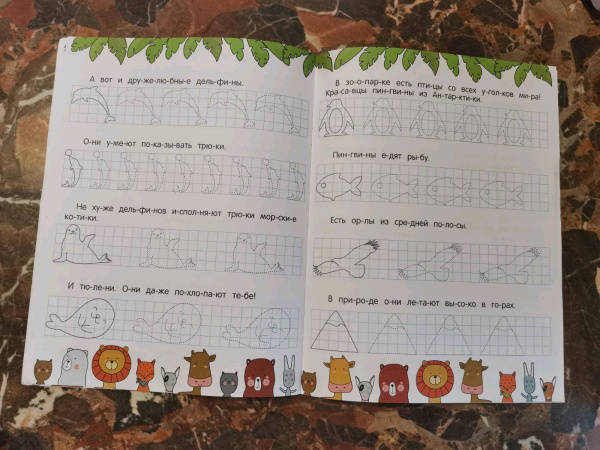 А вот и дру-же-лю-бны-е дель-фи-ны.
О-ни у-ме-ют по-ка-зы-вать трю-ки.
Не ху-же дель-фи-нов и-спол-ня-ют трю-ки мор-ски-е
ко-ти-ки.
И тю-ле-ни. О-ни да-же по-хло-па-ют те-бе!
В зо-о-пар-ке есть пти-цы со всех у-гол-ков ми-ра!
Кра-са-вцы пин-гви-ны из Ан-тар-кти-ки.
Пин-гви-ны е-дят ры-бу.
Есть ор-лы из сре-дней по-ло-сы.
В при-ро-де о-ни ле-та-ют вы-со-ко в го-рах.